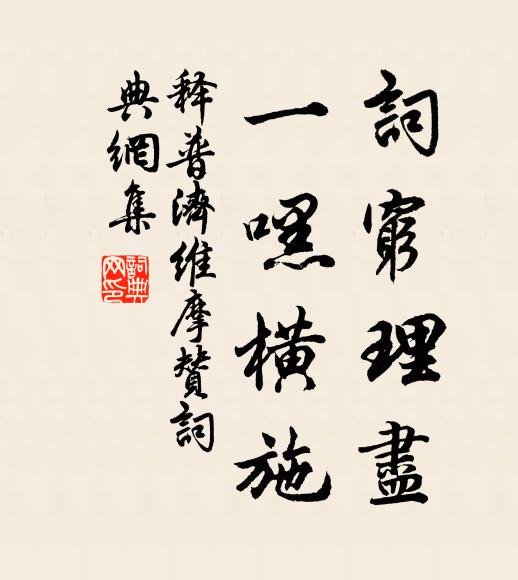 詞窮理盡
一嘿橫施
释普濟維摩贊詞
典網集
詞典
网印